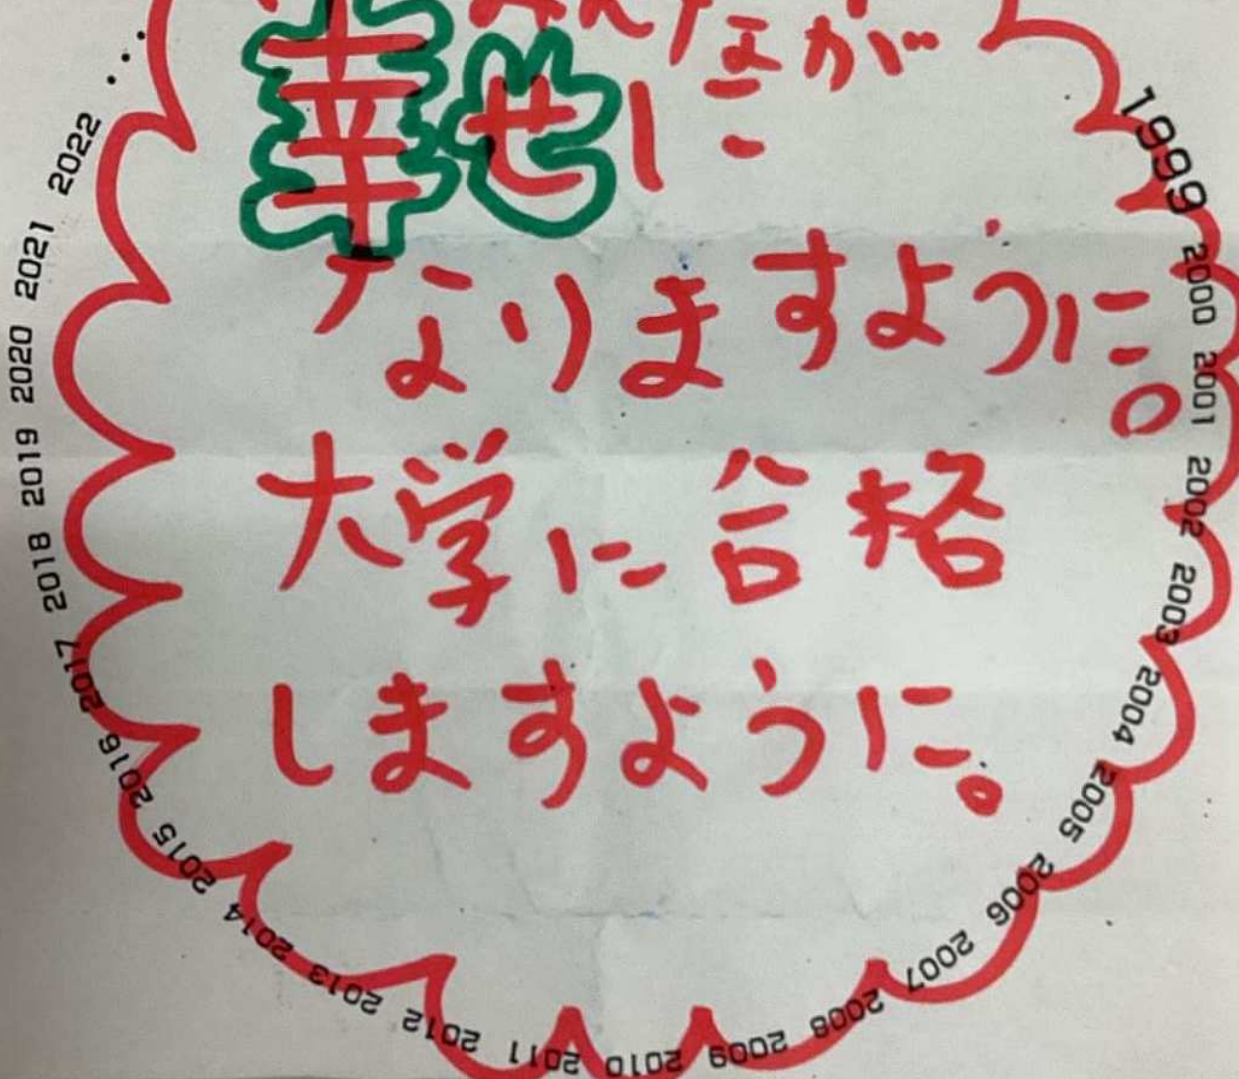 みんなが
幸せに
なりますように。
大学に合格
しますように。
1999 2000 2001 2002 2003 2004 2005 2006 2007 2008 2009 2010 2011 2012 2013 2014 2015 2016 2017 2018 2019 2020 2021 2022 ...